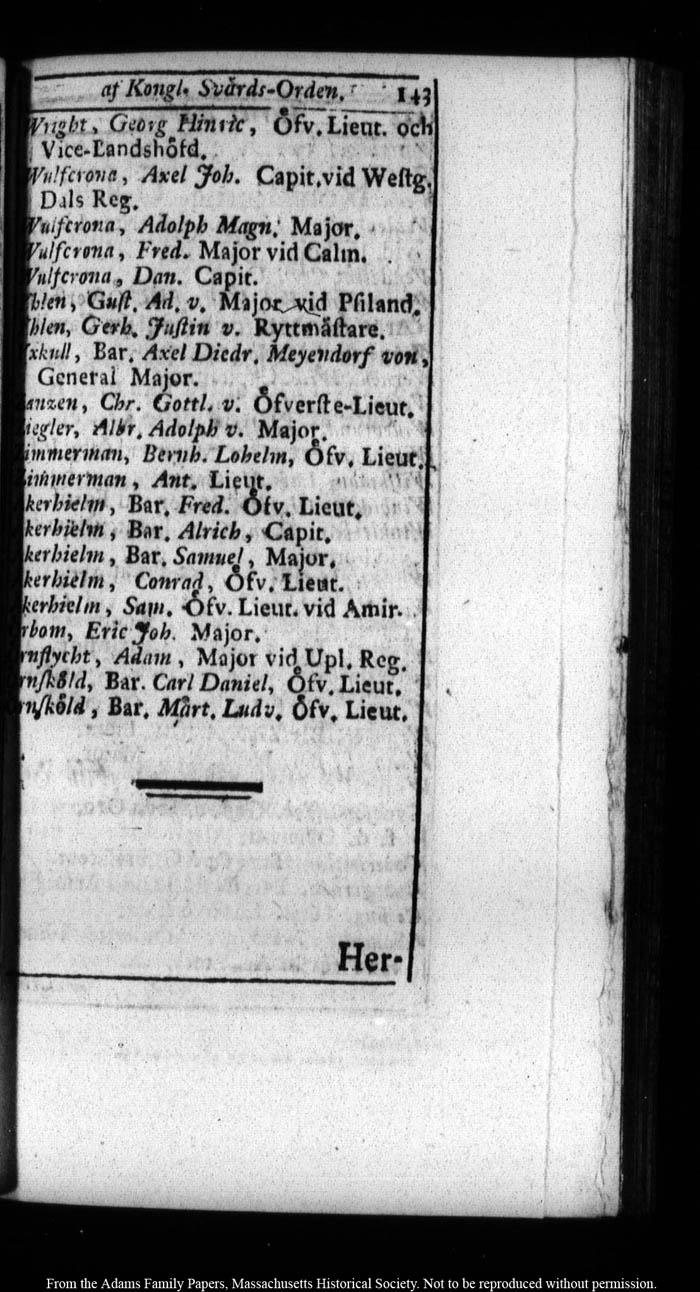 af Kongl. Svårds-Orden. 143
Wright, Georg Hinric, Öfv. Lieut. och
Vice-Landshöfd.
Wulfcrona, Axel Joh. Capit. vid Westg.
Dals Reg.
Wulfcrona, Adolph Magn. Major.
Wulfcrona, Fred. Major vid Calm.
Wulfcrona, Dan. Capit.
hlen, Gust. Ad. v. Major vid Psiland.
hlen, Gerh. Justin v. Ryttmästare.
xkull, Bar. Axel Diedr. Meyendorf von,
General Major.
anzen, Chr. Gottl. v. Öfverste-Lieut.
iegler, Albr. Adolph v. Major.
immerman, Bernh. Lohelm, Öfv. Lieut.
Zimmerman, Ant. Lieut.
kerhielm, Bar. Fred. Öfv. Lieut.
kerhielm, Bar. Alrich, Capit.
kerhielm, Bar. Samuel, Major.
kerhielm, Conrad, Öfv. Lieut.
kerhielm, Sam. Öfv. Lieut. vid Amir.
rbom, Eric Joh. Major.
rnflycht, Adam, Major vid Upl. Reg.
rnsköld, Bar. Carl Daniel, Öfv. Lieut.
rnsköld, Bar. Mårt. Ludv. Öfv. Lieut.
Her-
From the Adams Family Papers, Massachusetts Historical Society. Not to be reproduced without permission.